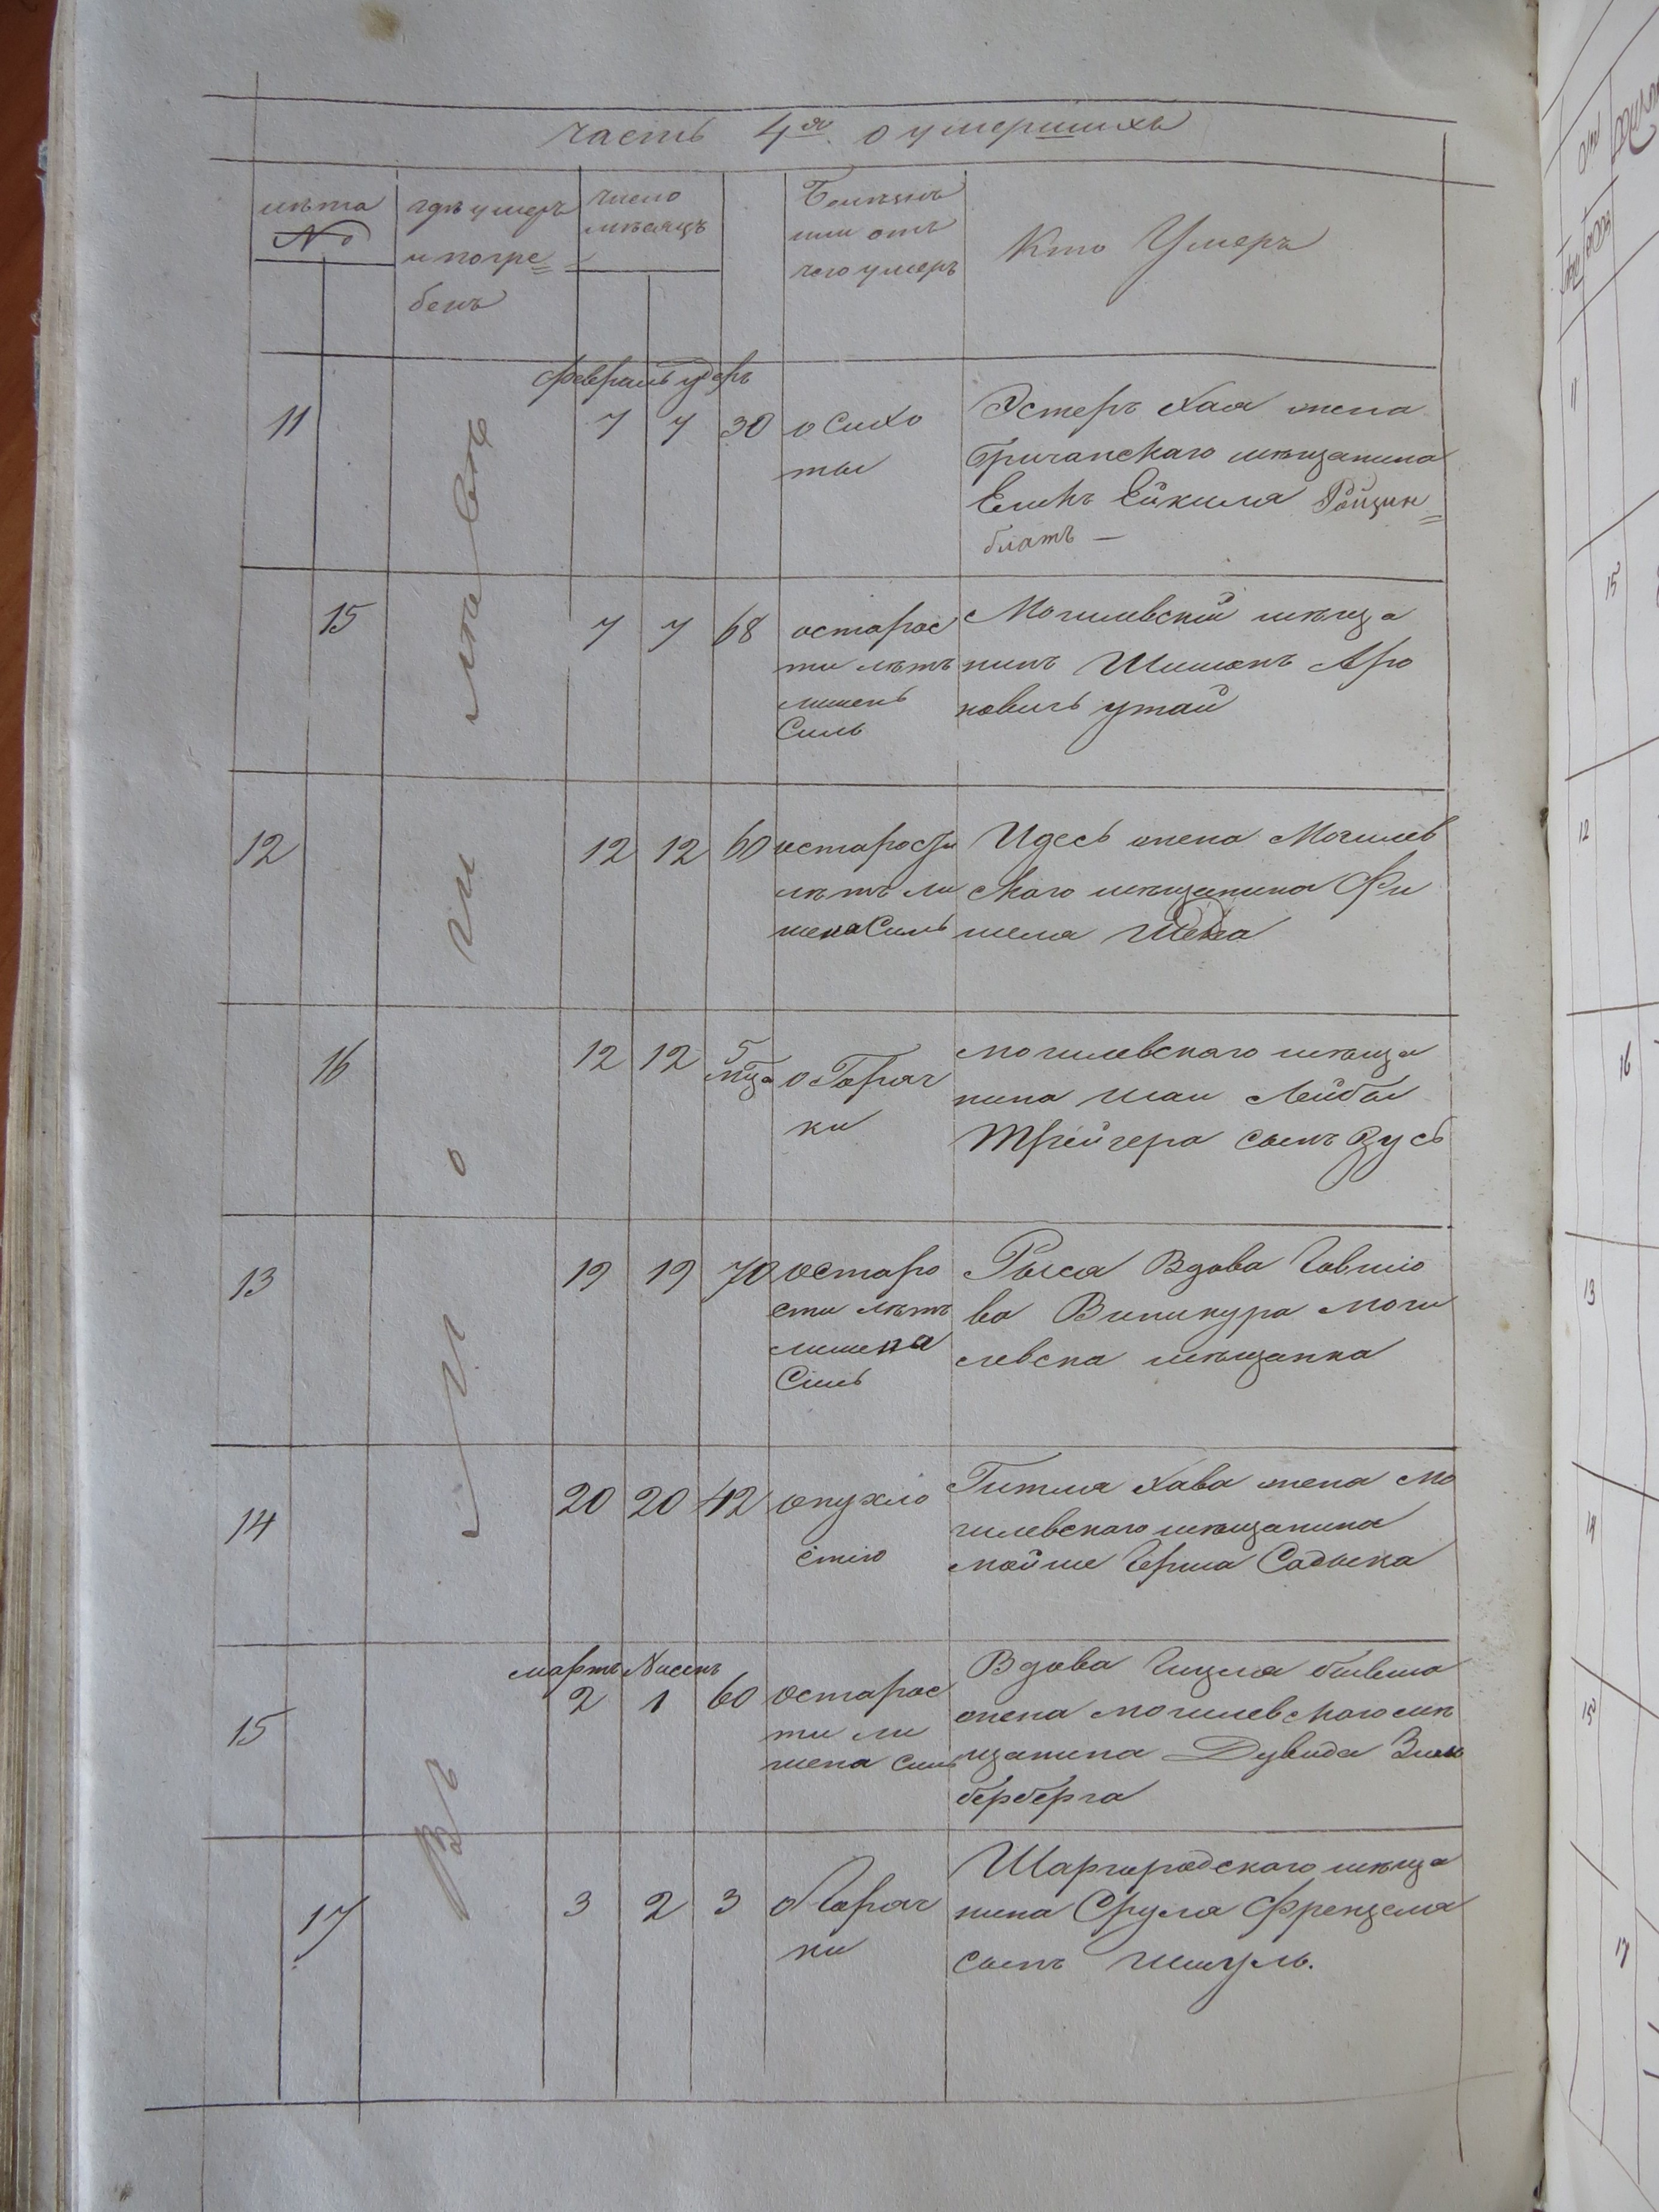 часть 4я о умершихъ
лѣта
№
гдѣ умеръ
и погре=
бенъ
число
мѣсяцъ
Болѣзнь
или отъ
чего умеръ
Кто Умеръ
въ Могилевѣ
февраль удеръ
11
7 7 30
о сихо
ты
Эстеръ Хая жена
Бричанскаго мѣщанина
Еликъ Ейхиля Ройцин=
блатъ —
15
7 7 68
остарос
ти лѣтъ
лишенъ
Силь
Могилевский мѣща
нинъ Шимонъ Аро
новичъ утай
12
12 12 60
остарости
лѣтъ ли
шена Силь
Идесь жена Могилев
скаго мѣщанина Фи
шеля
16
12 12 5
мца
о Горяч
ки
могилевскаго мѣща
нина Шаи Лейбы
Трейгера сынъ Зусь
13
19 19 70
остаро
сти лѣтъ
лишена
Силь
Рыся Вдова Говшiо
ва Виникура моги
левска мѣщанка
14
20 20 42
опухло
стiю
Гитля Хава жена мо
гилевскаго мѣщанина
мойше Герша Садыка
мартъ Нисенъ
15
2 1 60
остарос
ти ли
шена силь
Вдова Гицля бывша
жена могилевскаго мѣ
щанина Дувида Зиль
берберга
17
3 2 3
о Горяч
ки
Шаргородскаго мѣща
нина Сруля Френцеля
сынъ Шмуль.